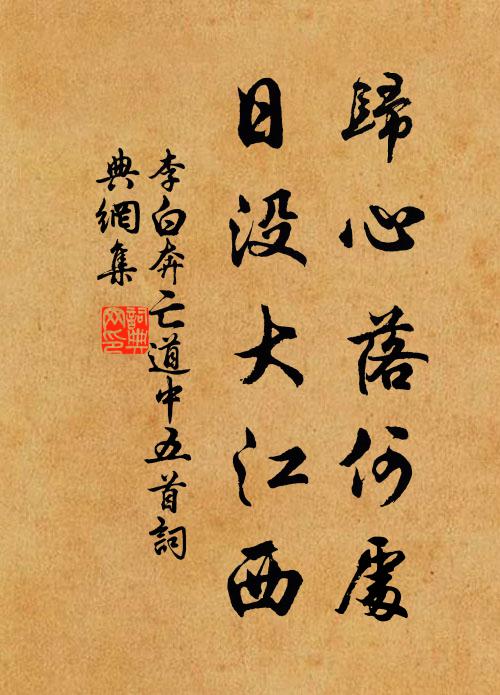 歸心落何處
日没大江西
李白奔亡道中五首詞
典網集
詞典
网印